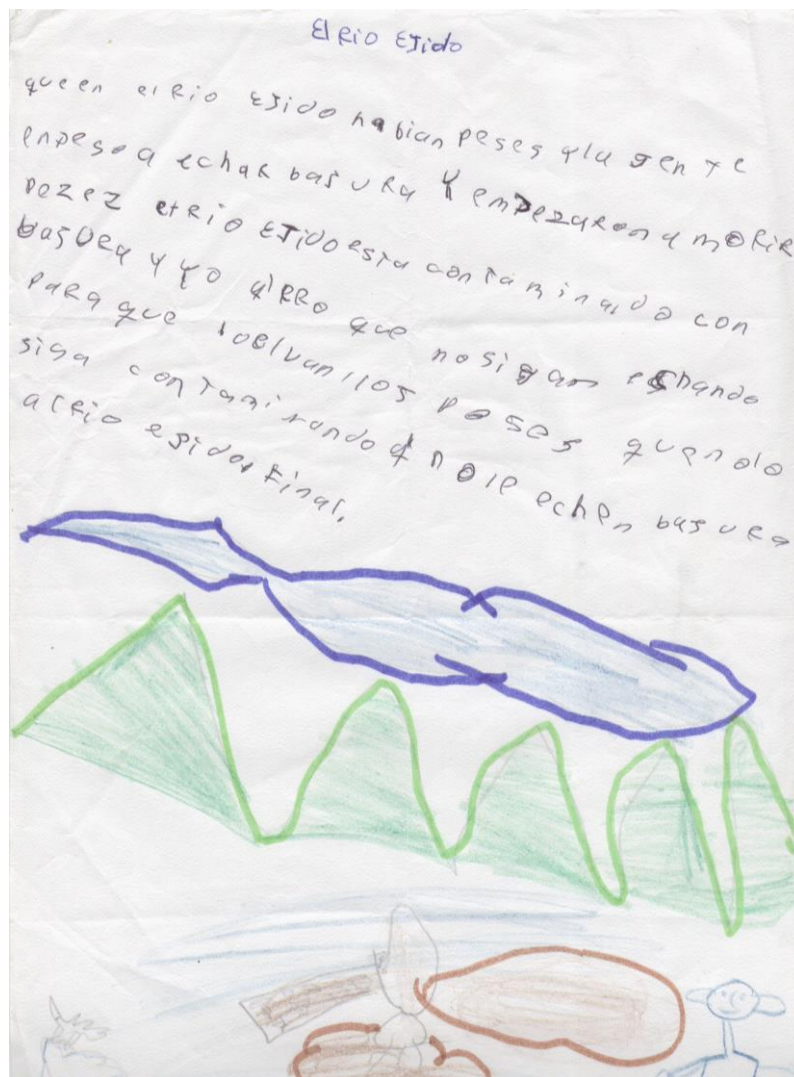 El Rio Ejido
queen el Rio Ejido habian peses yla gente
enpeso a echar basura y empezaron a morir
pezez el rio Ejido esta contaminado con
basura y yo qirro que nosigan echando
para que buelvan los peses quenolo
siga contaminando y nole echen basura
al rio ejido. Final.